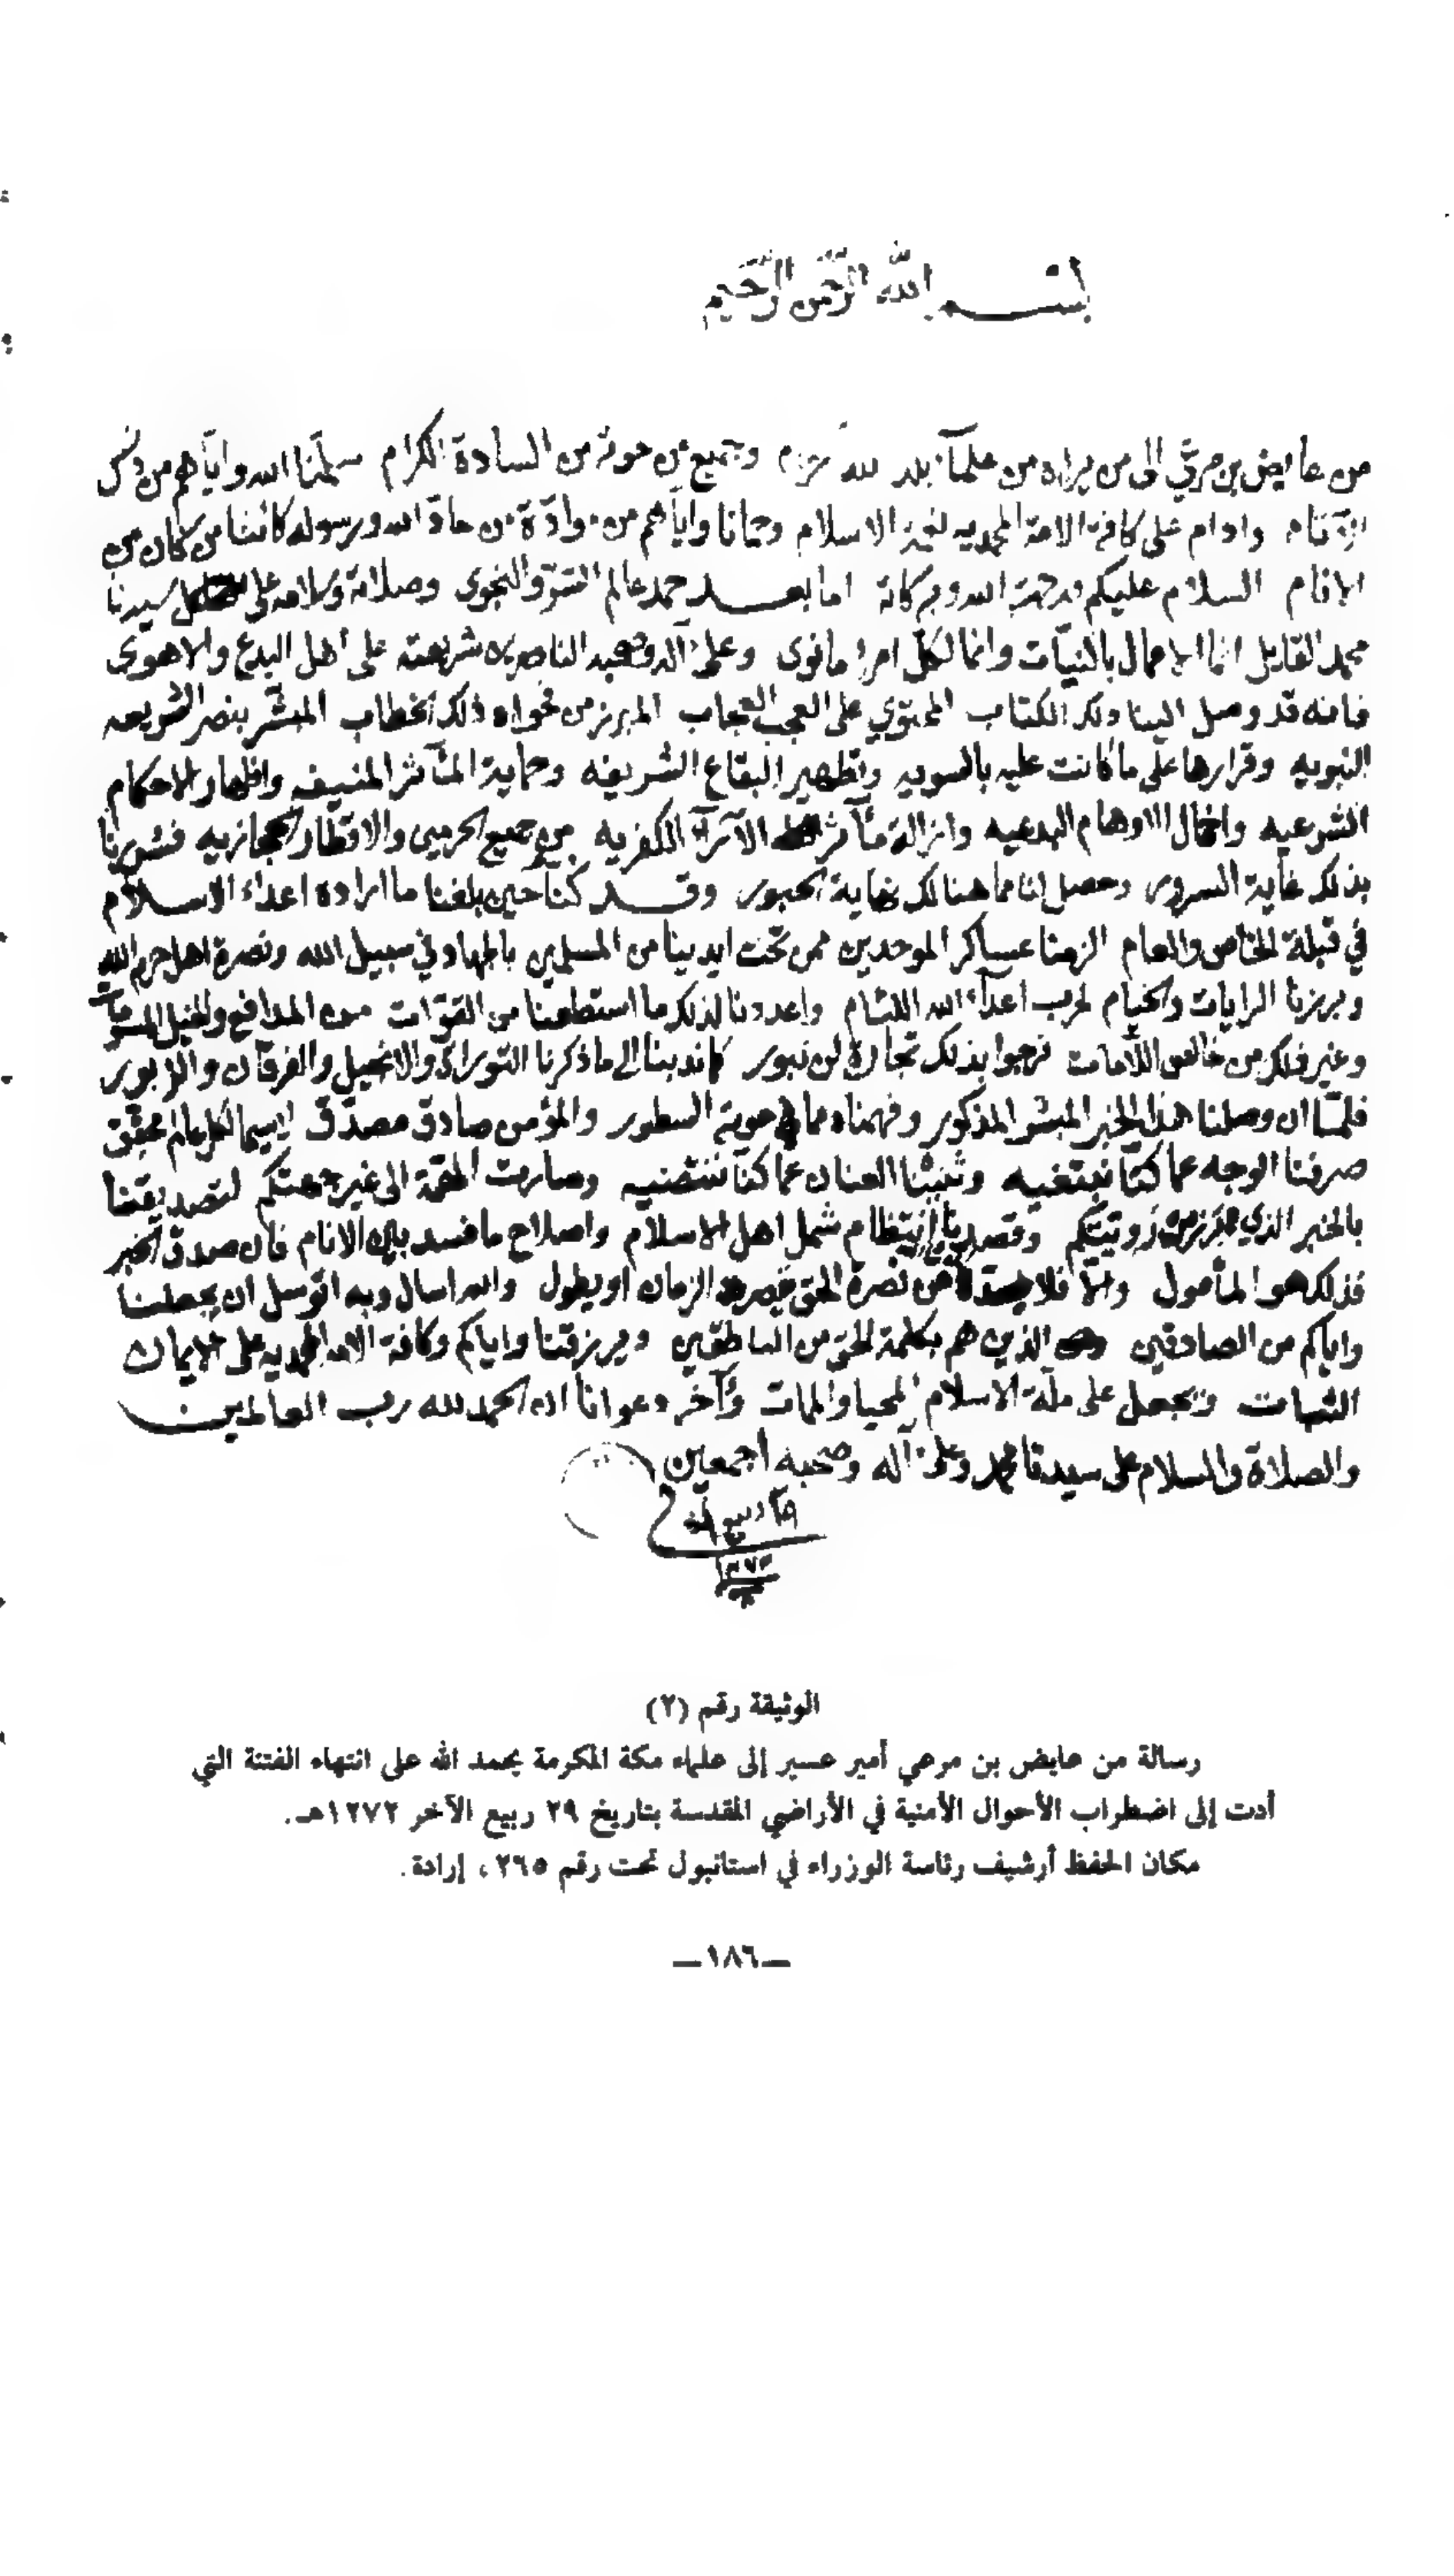 بسم الله الرحمن الرحيم
من عايض بن مرعي الى من يراه من علمآء بلد الله حرام وجميع من حوته من السادة الكرام سلمنا الله واياهم من دنس
الآثام وادام على كافة الامة المحمديه نعمة الاسلام وحمانا واياهم من موادّة من حادّ الله ورسوله كائنا من كان من
الانام السلام عليكم ورحمة الله وبركاته اما بعد حمد عالم السّرّ والنجوى وصلاته وسلامه على سيدنا
محمد القايل انما الاعمال بالنيّات وانما لكلّ امرء مانوى وعلى آله وصحبه الناصرين شريعته على أهل البدع والاهوى
فانه قد وصل الينا ذلك الكتاب المحتوي على العجب العجاب المبرز من فحواه ذلك الخطاب المبشّر بنصر الشريعه
النبويه وقرارها على ما كانت عليه بالسويه وتطهير البقاع الشريفه وحماية المآثر المنيفه واظهار الاحكام
الشرعيه واخمال الاوهام البدعيه وازالة مآثر الآرآء الكفريه من جميع الحرمين والاقطار الحجازيه فسررنا
بذلك غاية السرور وحصل لنا مما هنالك نهاية الحبور وقد كنا حين بلغنا ما اراده اعداء الاسلام
في قبلة الخاص والعام الزمنا عساكر الموحدين ممن تحت ايدينا من المسلمين بالجهاد في سبيل الله ونصرة اهل حرم الله
وبرزنا الرايات والخيام لحرب اعدآء الله اللئام واعددنا لذلك ما استطعنا من القوّات من المدافع والخيل المسوّمات
وغير ذلك من خالص اللآمات نرجوا بذلك تجارة لن تبور كما ندبنا الى ما ذكرنا التوراة والانجيل والفرقان والزبور
فلمّا ان وصلنا هذا الخبر المبشر المذكور وفهمناه مما حوته السطور والمؤمن صادق مصدّق لاسيما لكل عالم محقق
صرفنا الوجه عما كنّا نبتغيه وثنينا العنان عما كنّا ننتضيه وصارت الهمّة الى غير جهتكم لتصديقنا
بالخبر الذي من رويتكم وقصدنا انتظام شمل اهل الاسلام واصلاح ما فسد بين الانام فان صدق الخبر
فذلك هو المأمول والاّ فلا عن نصرة الحق قصر الزمان او يطول والله اسال وبه اتوسل ان يجعلنا
واياكم من الصادقين الذين هم بكلمة الحق من الناطقين ويرزقنا واياكم وكافة الامه المحمديه على الايمان
الثبات ونجعل على ملّة الاسلام المحيا والممات وآخر دعوانا ان الحمد لله رب العالمين
والصلاة والسلام على سيدنا محمد وعلى آله وصحبه اجمعين
ربيع
١٢٧٢
الوثيقة رقم (٢)
رسالة من عايض بن مرعي أمير عسير إلى علماء مكة المكرمة يحمد الله على انتهاء الفتنة التي
أدت إلى اضطراب الأحوال الأمنية في الأراضي المقدسة بتاريخ ٢٩ ربيع الآخر ١٢٧٢هـ.
مكان الحفظ أرشيف رئاسة الوزراء في استانبول تحت رقم ٢٦٥، إرادة.
—١٨٦—